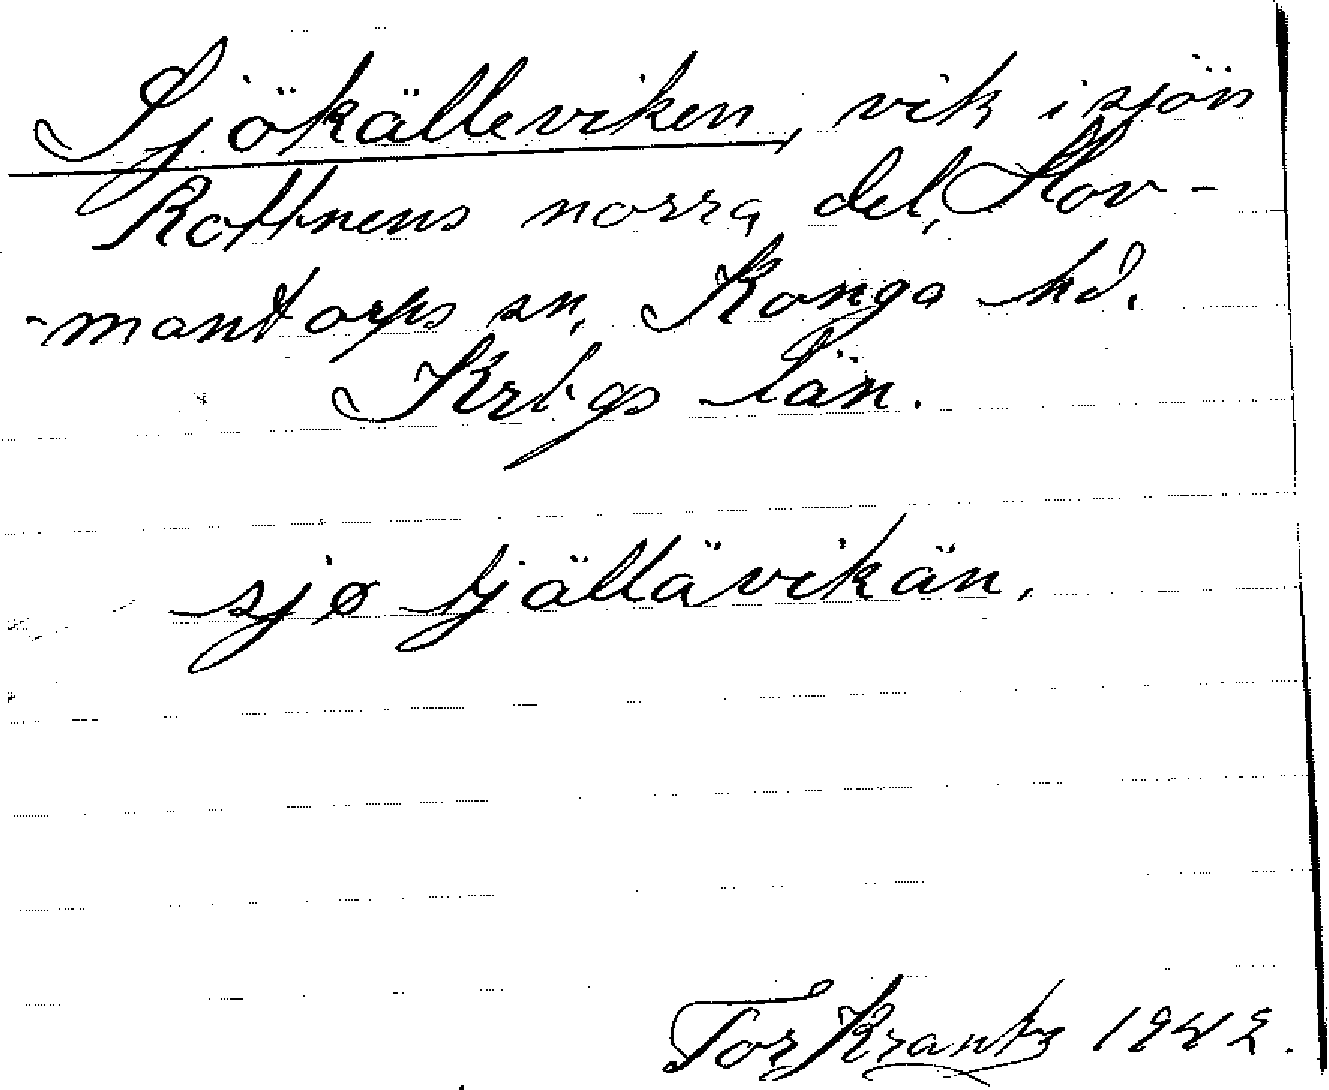 Sjökälleviken, vik i sjön
Rottnens norra del, Hov-
-mantorps sn, Konga hd.
Krbgs län.
sjø tjällävikän,
Tor Krantz 1942.